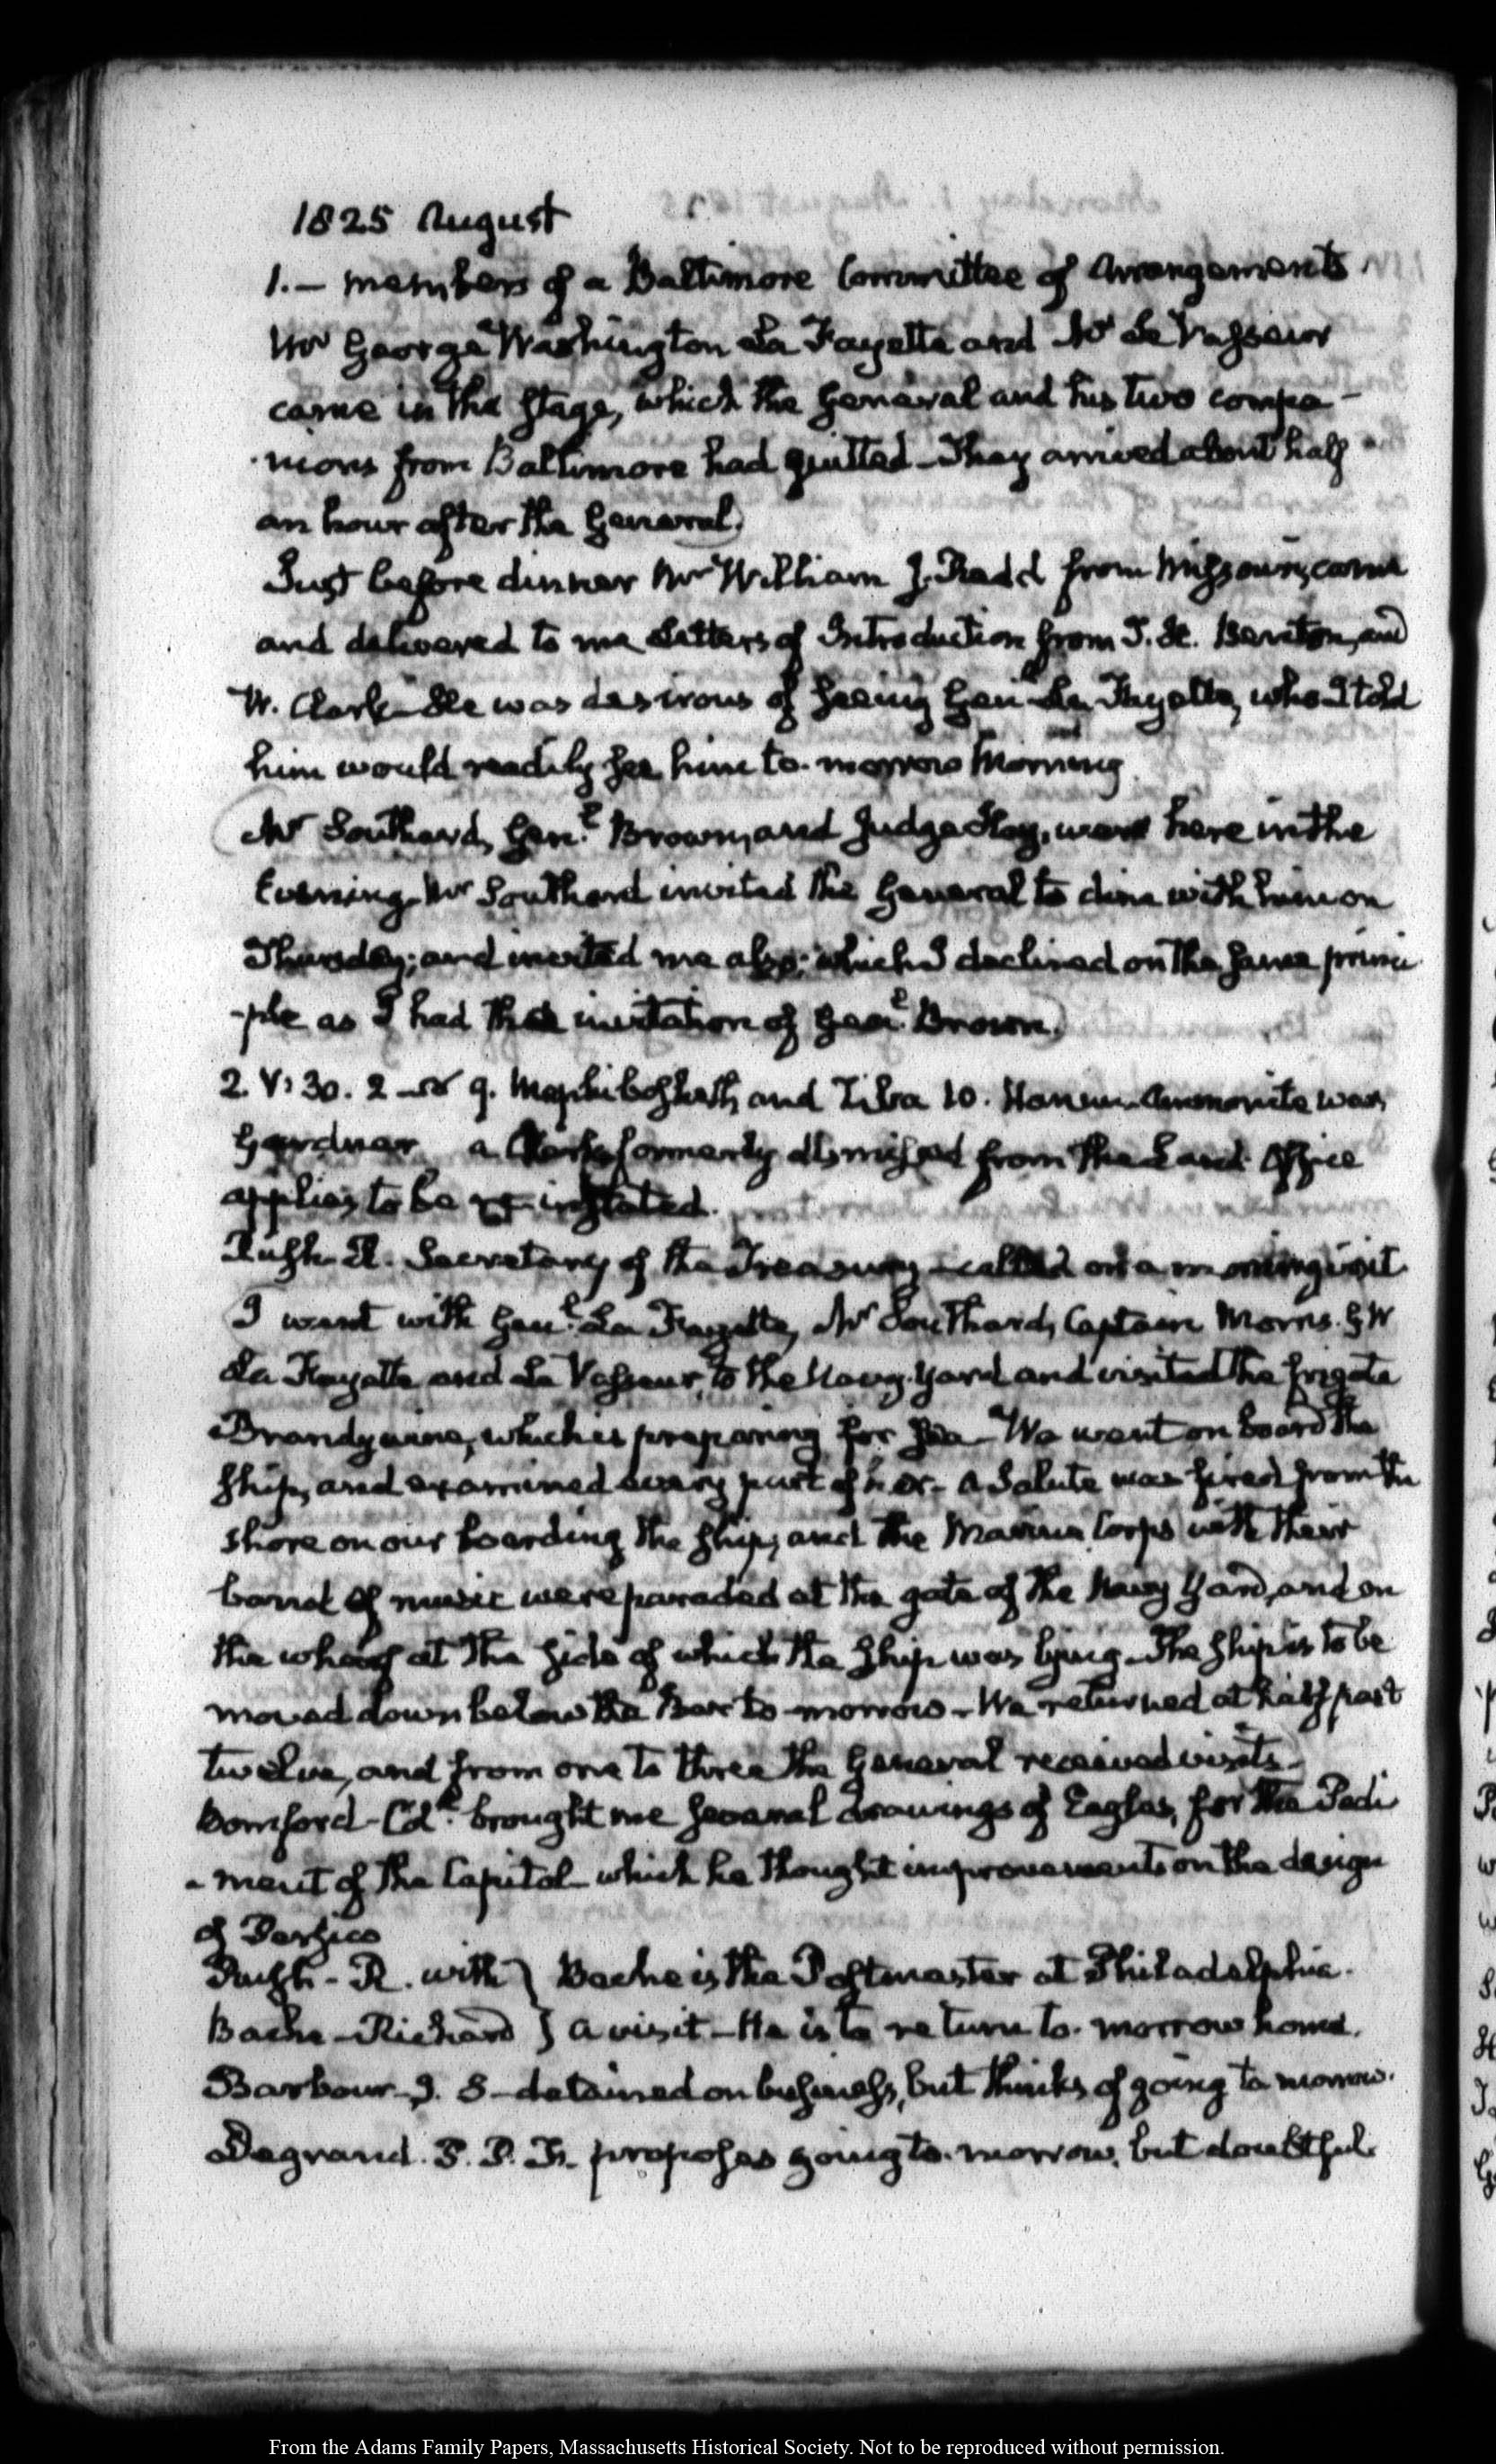 1825 August
1.— members of a Baltimore Committee of Arrangements
Mr George Washington La Fayette and Mr Le Vasseur
came in the Stage, which the General and his two compa-
-nions from Baltimore had quitted — They arrived about half
an hour after the General.
Just before dinner Mr William J. Redd from Missouri, came
and delivered to me Letters of Introduction from T. H. Benton, and
W. Clark — He was desirous of seeing Genl La Fayette, who I told
him would readily see him to-morrow Morning.
Mr Southard, Genl. Brown, and Judge Hay, were here in the
Evening. Mr Southard invited the General to dine with him on
Thursday; and invited me also; which I declined on the same princi
-ple as I had the invitation of Genl. Brown.)
2. V: 30. 2 9. Mephibosheth and Ziba 10. Hanun. Ammonite war,
Gardner a Clerk formerly dismissed from the Land Office
applies to be re-instated.
Rush. R. Secretary of the Treasury — called on a morning visit
I went with Genl. La Fayette, Mr Southard, Captain Morris. G W
La Fayette and Le Vasseur, to the Navy-Yard and visited the frigate
Brandywine, which is preparing for Sea — We went on board the
ship, and examined every part of her — A Salute was fired from the
shore on our boarding the ship, and the Marine Corps with their
band of music were paraded at the gate of the Navy Yard, and on
the wharf at the side of which the ship was lying — The ship is to be
moved down below the Bar to-morrow — We returned at half past
twelve, and from one to three the General received visits —
Bomford — Coll. brought me several drawings of Eagles, for the Pedi
- ment of the Capitol — which he thought improvements on the design
of Persico
Rush — R. with } Bache is the Postmaster at Philadelphia.
Bache — Richard } a visit — He is to return to-morrow home.
Barbour J. S — detained on business, but thinks of going to morrow.
Degrand. P. P. F. proposes going to-morrow, but doubtful.
From the Adams Family Papers, Massachusetts Historical Society. Not to be reproduced without permission.